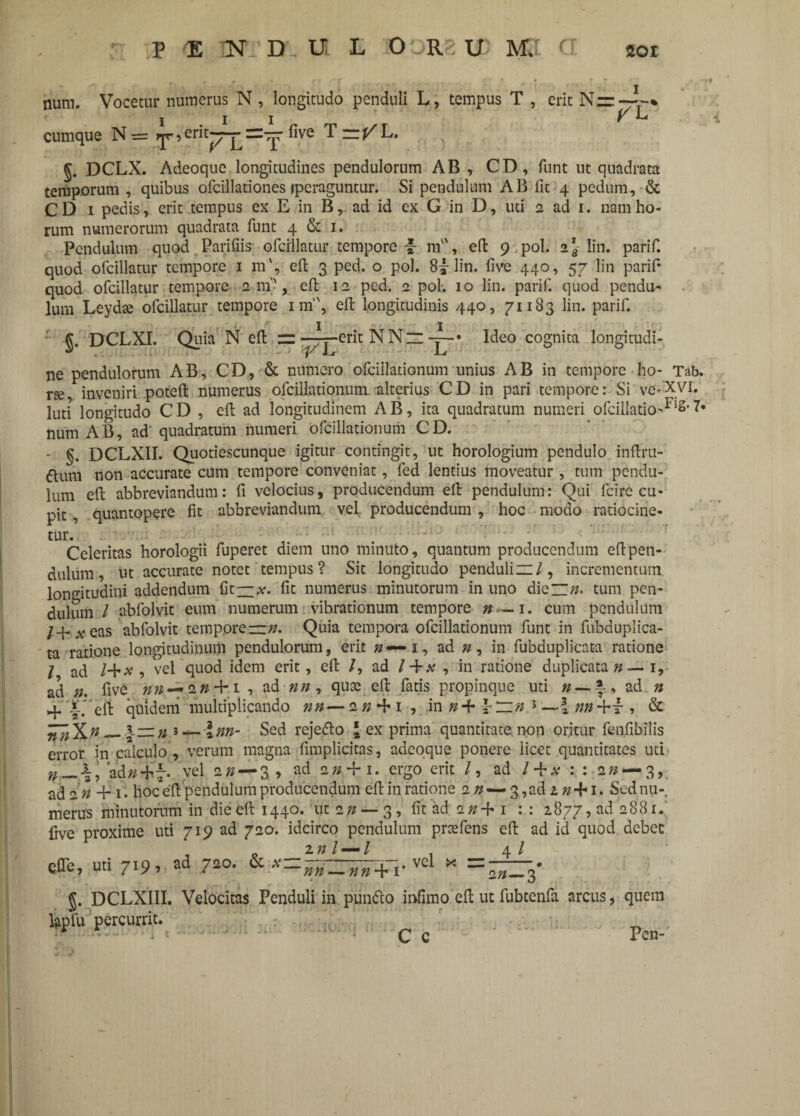 PENDULORUM. 201
num. Vocetur numerus N, longitudo penduli L, tempus T, erit N = 1/√L.
cumque N = 1/T, erit 1/√L = 1/T sive T = √L.
§. DCLX. Adeoque longitudines pendulorum AB, CD, sunt ut quadrata
temporum, quibus oscillationes peraguntur. Si pendulum AB sit 4 pedum, &
CD 1 pedis, erit tempus ex E in B, ad id ex G in D, uti 2 ad 1. nam ho-
rum numerorum quadrata sunt 4 & 1.
Pendulum quod Parisiis oscillatur tempore ½ m'', est 9 pol. 2⅛ lin. paris.
quod oscillatur tempore 1 m'', est 3 ped. 0 pol. 8½ lin. sive 440, 57 lin paris.
quod oscillatur tempore 2 m'', est 12 ped. 2 pol. 10 lin. paris. quod pendu-
lum Leydæ oscillatur tempore 1 m'', est longitudinis 440, 71183 lin. paris.
§. DCLXI. Quia N est = 1/√L erit NN = 1/L. Ideo cognita longitudi-
ne pendulorum AB, CD, & numero oscillationum unius AB in tempore ho- Tab.
ræ, inveniri potest numerus oscillationum alterius CD in pari tempore: Si ve- XVI.
luti longitudo CD, est ad longitudinem AB, ita quadratum numeri oscillatio- Fig. 7.
num AB, ad quadratum numeri oscillationum CD.
§. DCLXII. Quotiescunque igitur contingit, ut horologium pendulo instru-
ctum non accurate cum tempore conveniat, sed lentius moveatur, tum pendu-
lum est abbreviandum: si velocius, producendum est pendulum: Qui scire cu-
pit, quantopere sit abbreviandum vel producendum, hoc modo ratiocine-
tur.
Celeritas horologii superet diem uno minuto, quantum producendum est pen-
dulum, ut accurate notet tempus? Sit longitudo penduli = l, incrementum
longitudini addendum sit = x. sit numerus minutorum in uno die = n. tum pen-
dulum l absolvit eum numerum vibrationum tempore n — 1. cum pendulum
l + x eas absolvit tempore = n. Quia tempora oscillationum sunt in subduplica-
ta ratione longitudinum pendulorum, erit n — 1, ad n, in subduplicata ratione
l, ad l + x, vel quod idem erit, est l, ad l + x, in ratione duplicata n — 1,
ad n. sive nn — 2n + 1, ad nn, quæ est satis propinque uti n — ¾, ad n
+ ½. est quidem multiplicando nn — 2n + 1, in n + ½ = n³ — ½ nn + ½, &
nn X n — ½ = n³ — ½nn. Sed rejecto ½ ex prima quantitate non oritur sensibilis
error in calculo, verum magna simplicitas, adeoque ponere licet quantitates uti
n — ½, ad n + ½. vel 2n — 3, ad 2n + 1. ergo erit l, ad l + x :: 2n — 3,
ad 2n + 1. hoc est pendulum producendum est in ratione 2n — 3, ad 2n + 1. Sed nu-
merus minutorum in die est 1440. ut 2n — 3, sit ad 2n + 1 :: 2877, ad 2881.
sive proxime uti 719 ad 720. idcirco pendulum præsens est ad id quod debet
esse, uti 719, ad 720. & x = 2nl — l / nn — nn + 1. vel x = 4l / 2n — 3.
§. DCLXIII. Velocitas Penduli in puncto infimo est ut subtensa arcus, quem
lapsu percurrit.
C c Pen-